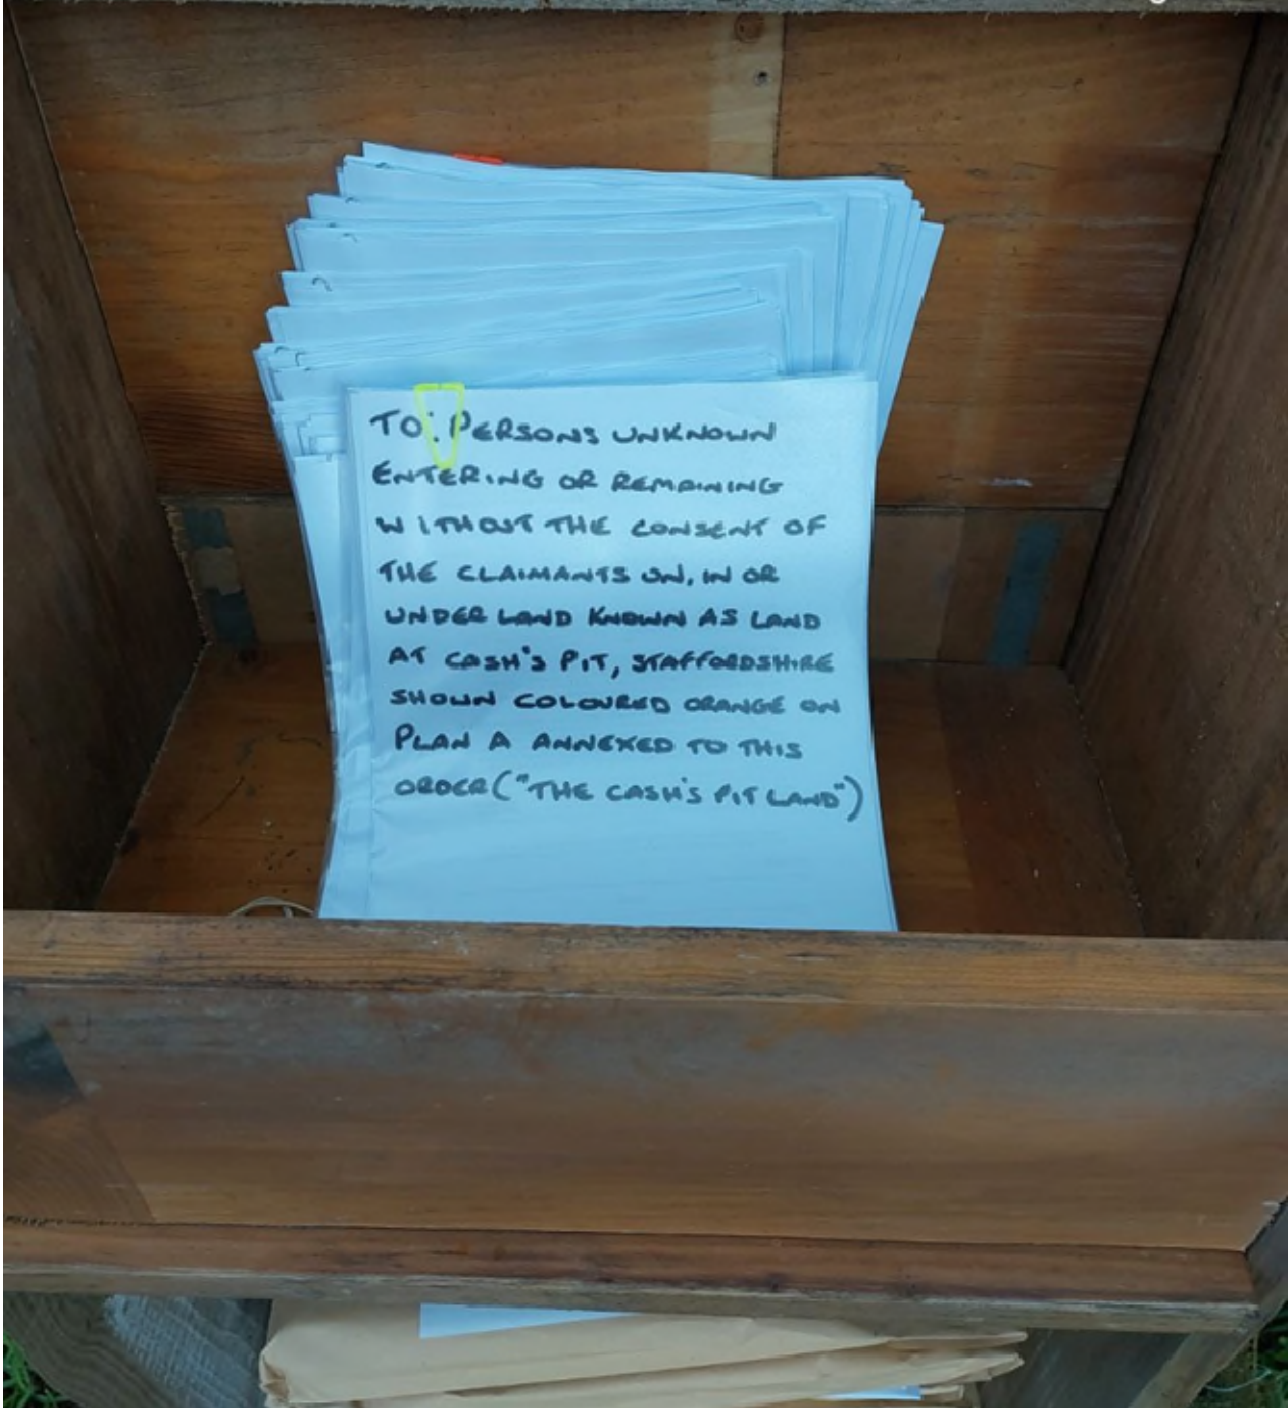 TO: PERSONS UNKNOWN
ENTERING OR REMAINING
WITHOUT THE CONSENT OF
THE CLAIMANTS ON, IN OR
UNDER LAND KNOWN AS LAND
AT CASH'S PIT, STAFFORDSHIRE
SHOWN COLOURED ORANGE ON
PLAN A ANNEXED TO THIS
ORDER ("THE CASH'S PIT LAND")